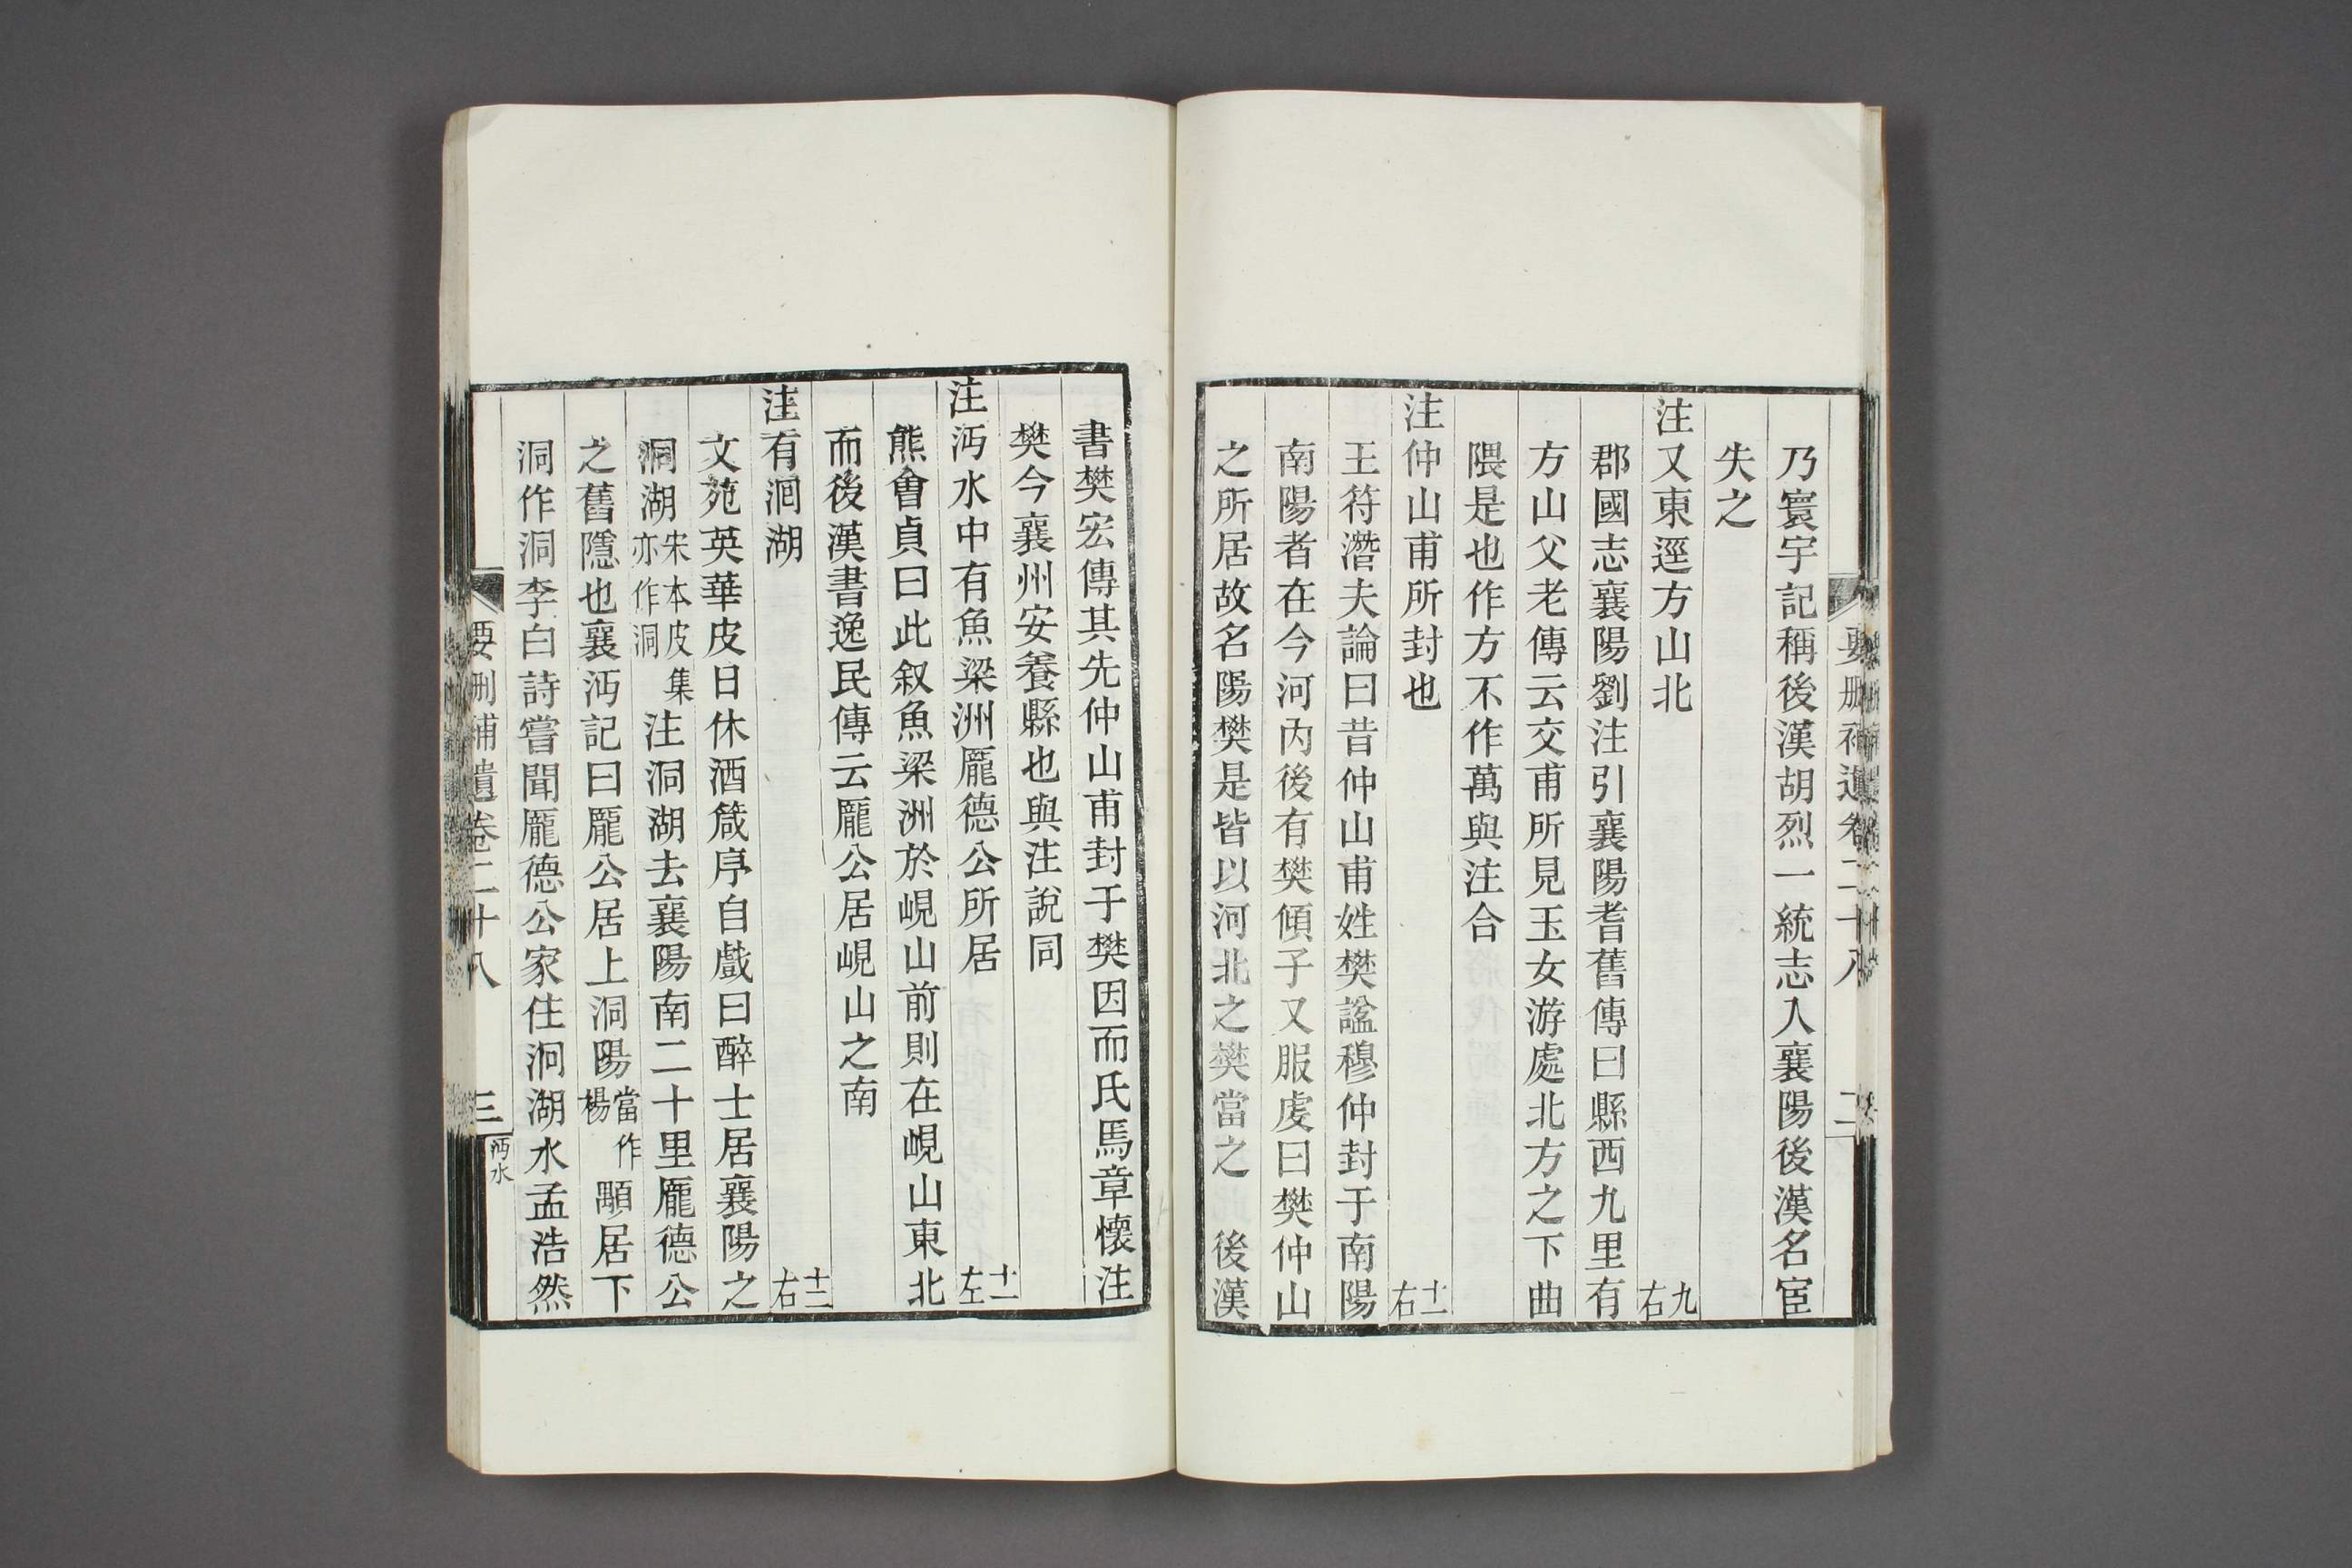 乃寰宇記稱後漢胡烈一統志入襄陽後漢名宦
失之
注又東逕方山北 九右
郡國志襄陽劉注引襄陽耆舊傳曰縣西九里有
方山父老傳云交甫所見玉女游處北方之下曲
隈是也作方不作萬與注合
注仲山甫所封也 十一右
王符潛夫論曰昔仲山甫姓樊諡穆仲封于南陽
南陽者在今河內後有樊傾子又服虔曰樊仲山
之所居故名陽樊是皆以河北之樊當之 後漢
書樊宏傳其先仲山甫封于樊因而氏焉章懷注
樊今襄州安養縣也與注說同
注沔水中有魚梁洲龐德公所居 十一左
熊會貞曰此叙魚梁洲於峴山前則在峴山東北
而後漢書逸民傳云龐公居峴山之南
注有洄湖 十二右
文苑英華皮日休酒箴序自戲曰醉士居襄陽之
洞湖宋本皮集亦作洞注洞湖去襄陽南二十里龐德公
之舊隱也襄沔記曰龐公居上洞陽當作楊顒居下
洞作洞李白詩嘗聞龐德公家住洞湖水孟浩然
要刪補遺卷二十八 三 沔水